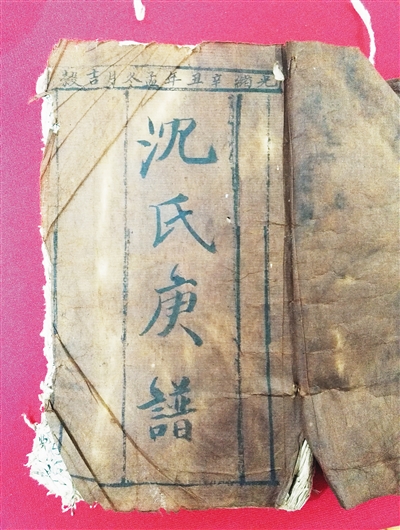 光緒辛丑年孟冬月吉穀
沈氏庚譜